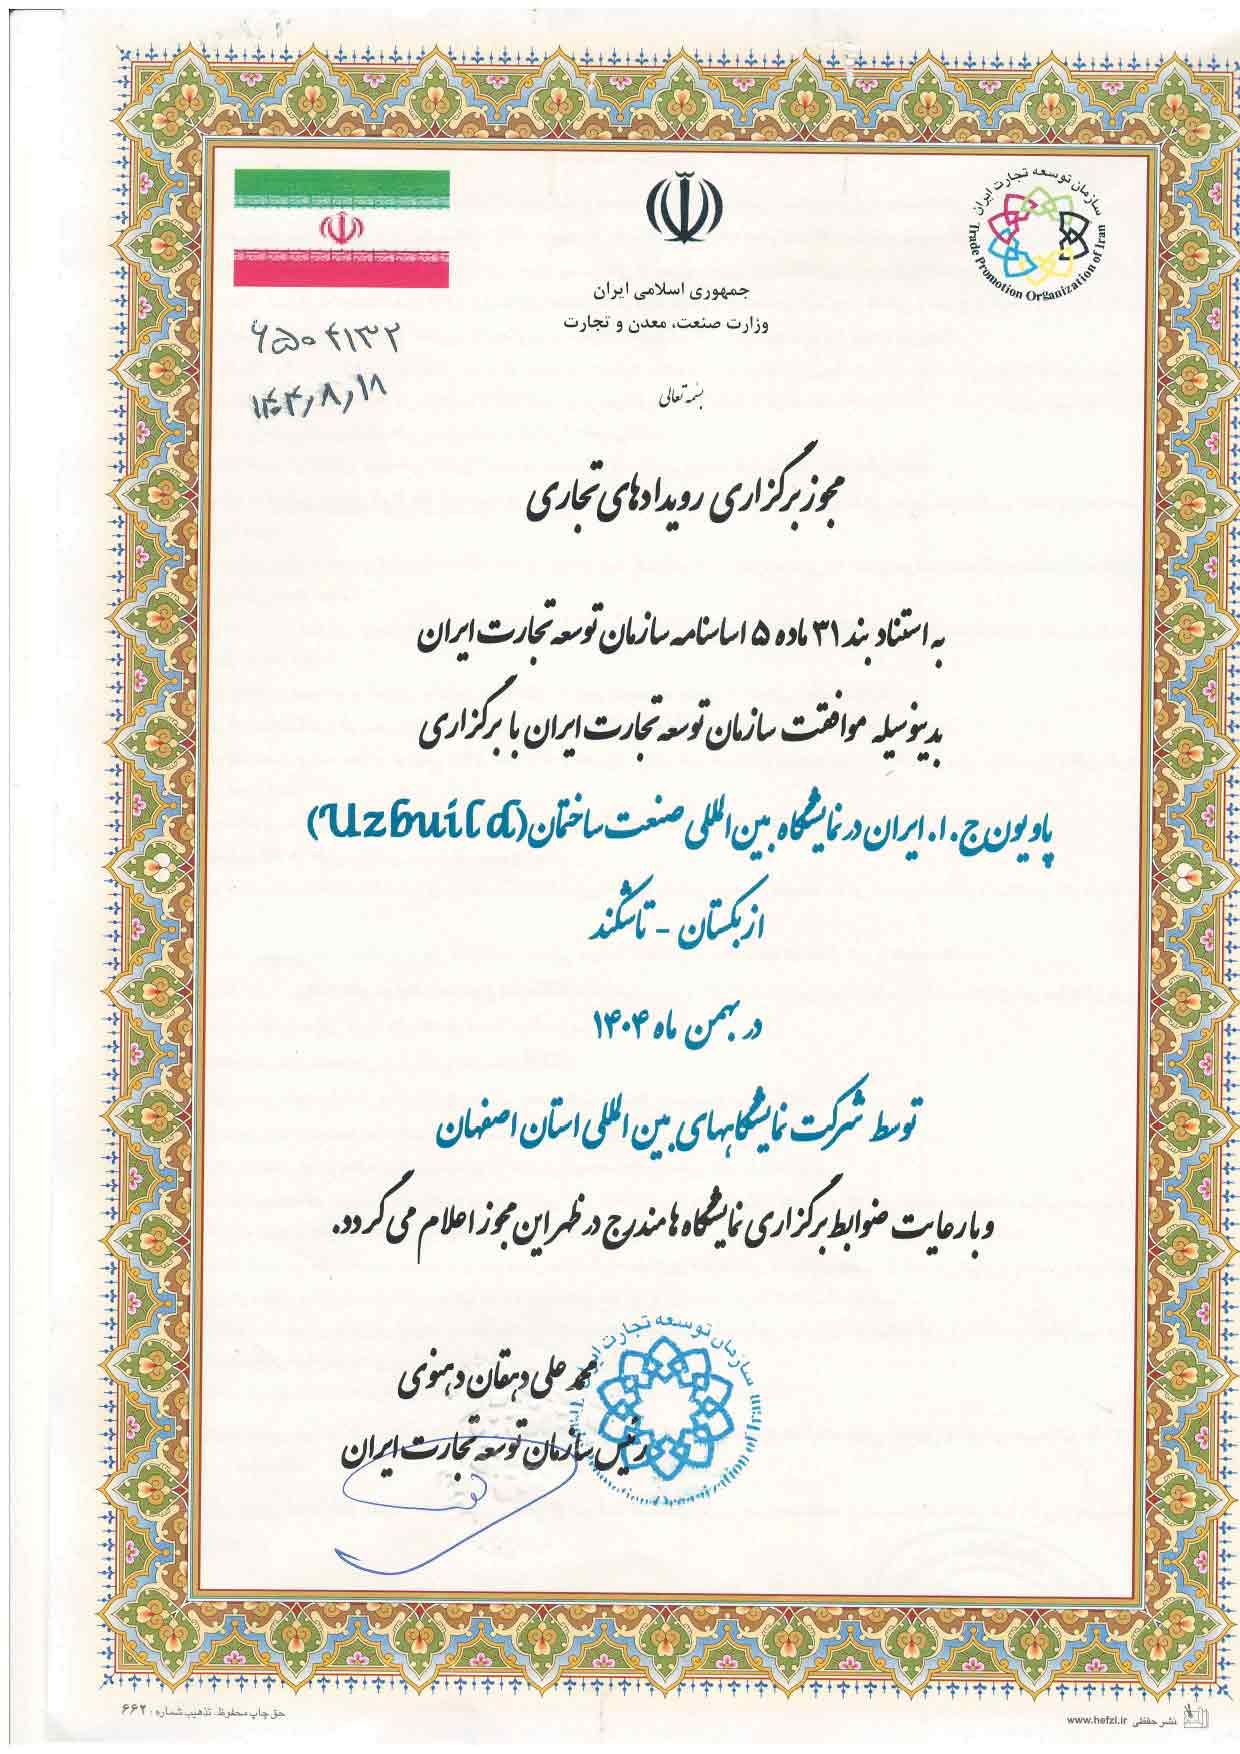 سازمان توسعه تجارت ایران
Trade Promotion Organization of Iran
جمهوری اسلامی ایران
وزارت صنعت، معدن و تجارت
۶۵۰۴۱۳۲
۱۴۰۴/۸/۱۸
بسمه تعالی
مجوز برگزاری رویدادهای تجاری
به استناد بند ۳۱ ماده ۵ اساسنامه سازمان توسعه تجارت ایران
بدینوسیله موافقت سازمان توسعه تجارت ایران با برگزاری
پاویون ج.ا. ایران در نمایشگاه بین المللی صنعت ساختمان (Uzbuild)
ازبکستان - تاشکند
در بهمن ماه ۱۴۰۴
توسط شرکت نمایشگاههای بین المللی استان اصفهان
و با رعایت ضوابط برگزاری نمایشگاه ها مندرج در ظهر این مجوز اعلام می گردد.
سازمان توسعه تجارت ایران
محمد علی دهقان دهنوی
رئیس سازمان توسعه تجارت ایران
نشر حفظی www.hefzi.ir
حق چاپ محفوظ. تذهیب شماره: ۶۶۲